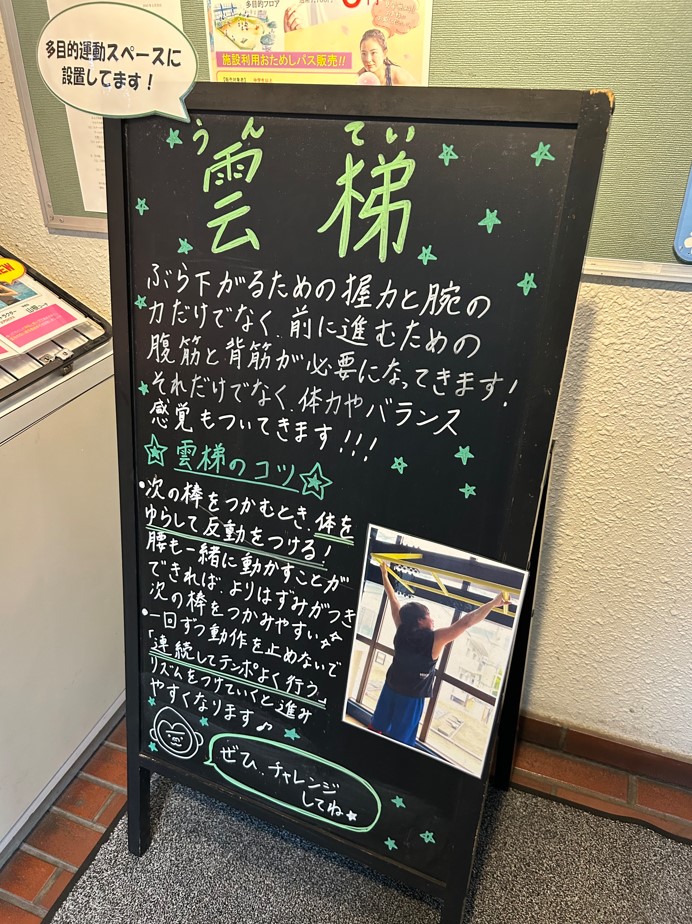 多目的フロア
施設利用おためしパス販売!!
多目的運動スペースに
設置してます！
うんてい
雲梯
ぶら下がるための握力と腕の
力だけでなく、前に進むための
腹筋と背筋が必要になってきます！
それだけでなく、体力やバランス
感覚もついてきます！！！
☆雲梯のコツ☆
・次の棒をつかむとき、体を
ゆらして反動をつける！
腰も一緒に動かすことが
できれば、よりはずみがつき
次の棒をつかみやすい
・一回ずつ動作を止めないで
「連続してテンポよく行う」
リズムをつけていくと進み
やすくなります♪
ぜひ、チャレンジ
してね★
NEW